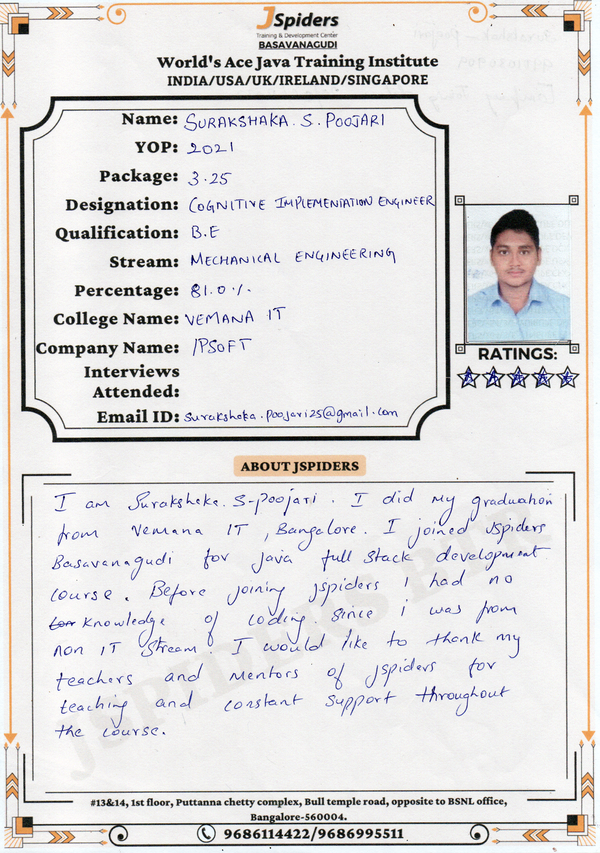 JSpiders
Training & Development Center
BASAVANAGUDI
World's Ace Java Training Institute
INDIA/USA/UK/IRELAND/SINGAPORE
Name: SURAKSHAKA. S. POOJARI
YOP: 2021
Package: 3.25
Designation: COGNITIVE IMPLEMENTATION ENGINEER
Qualification: B.E
Stream: MECHANICAL ENGINEERING
Percentage: 81.0%.
College Name: VEMANA IT
Company Name: IPSOFT
Interviews
Attended:
Email ID: surakshaka.poojari25@gmail.com
RATINGS:
ABOUT JSPIDERS
I am Surakshaka. S-poojari. I did my graduation
from Vemana IT, Bangalore. I joined Jspiders
Basavanagudi for Java full stack development
course. Before joining jspiders I had no
knowledge of coding. since I was from
non IT stream. I would like to thank my
teachers and mentors of jspiders for
teaching and constant support throughout
the course.
JSPIDERS BTR
#13&14, 1st floor, Puttanna chetty complex, Bull temple road, opposite to BSNL office,
Bangalore-560004.
9686114422/9686995511